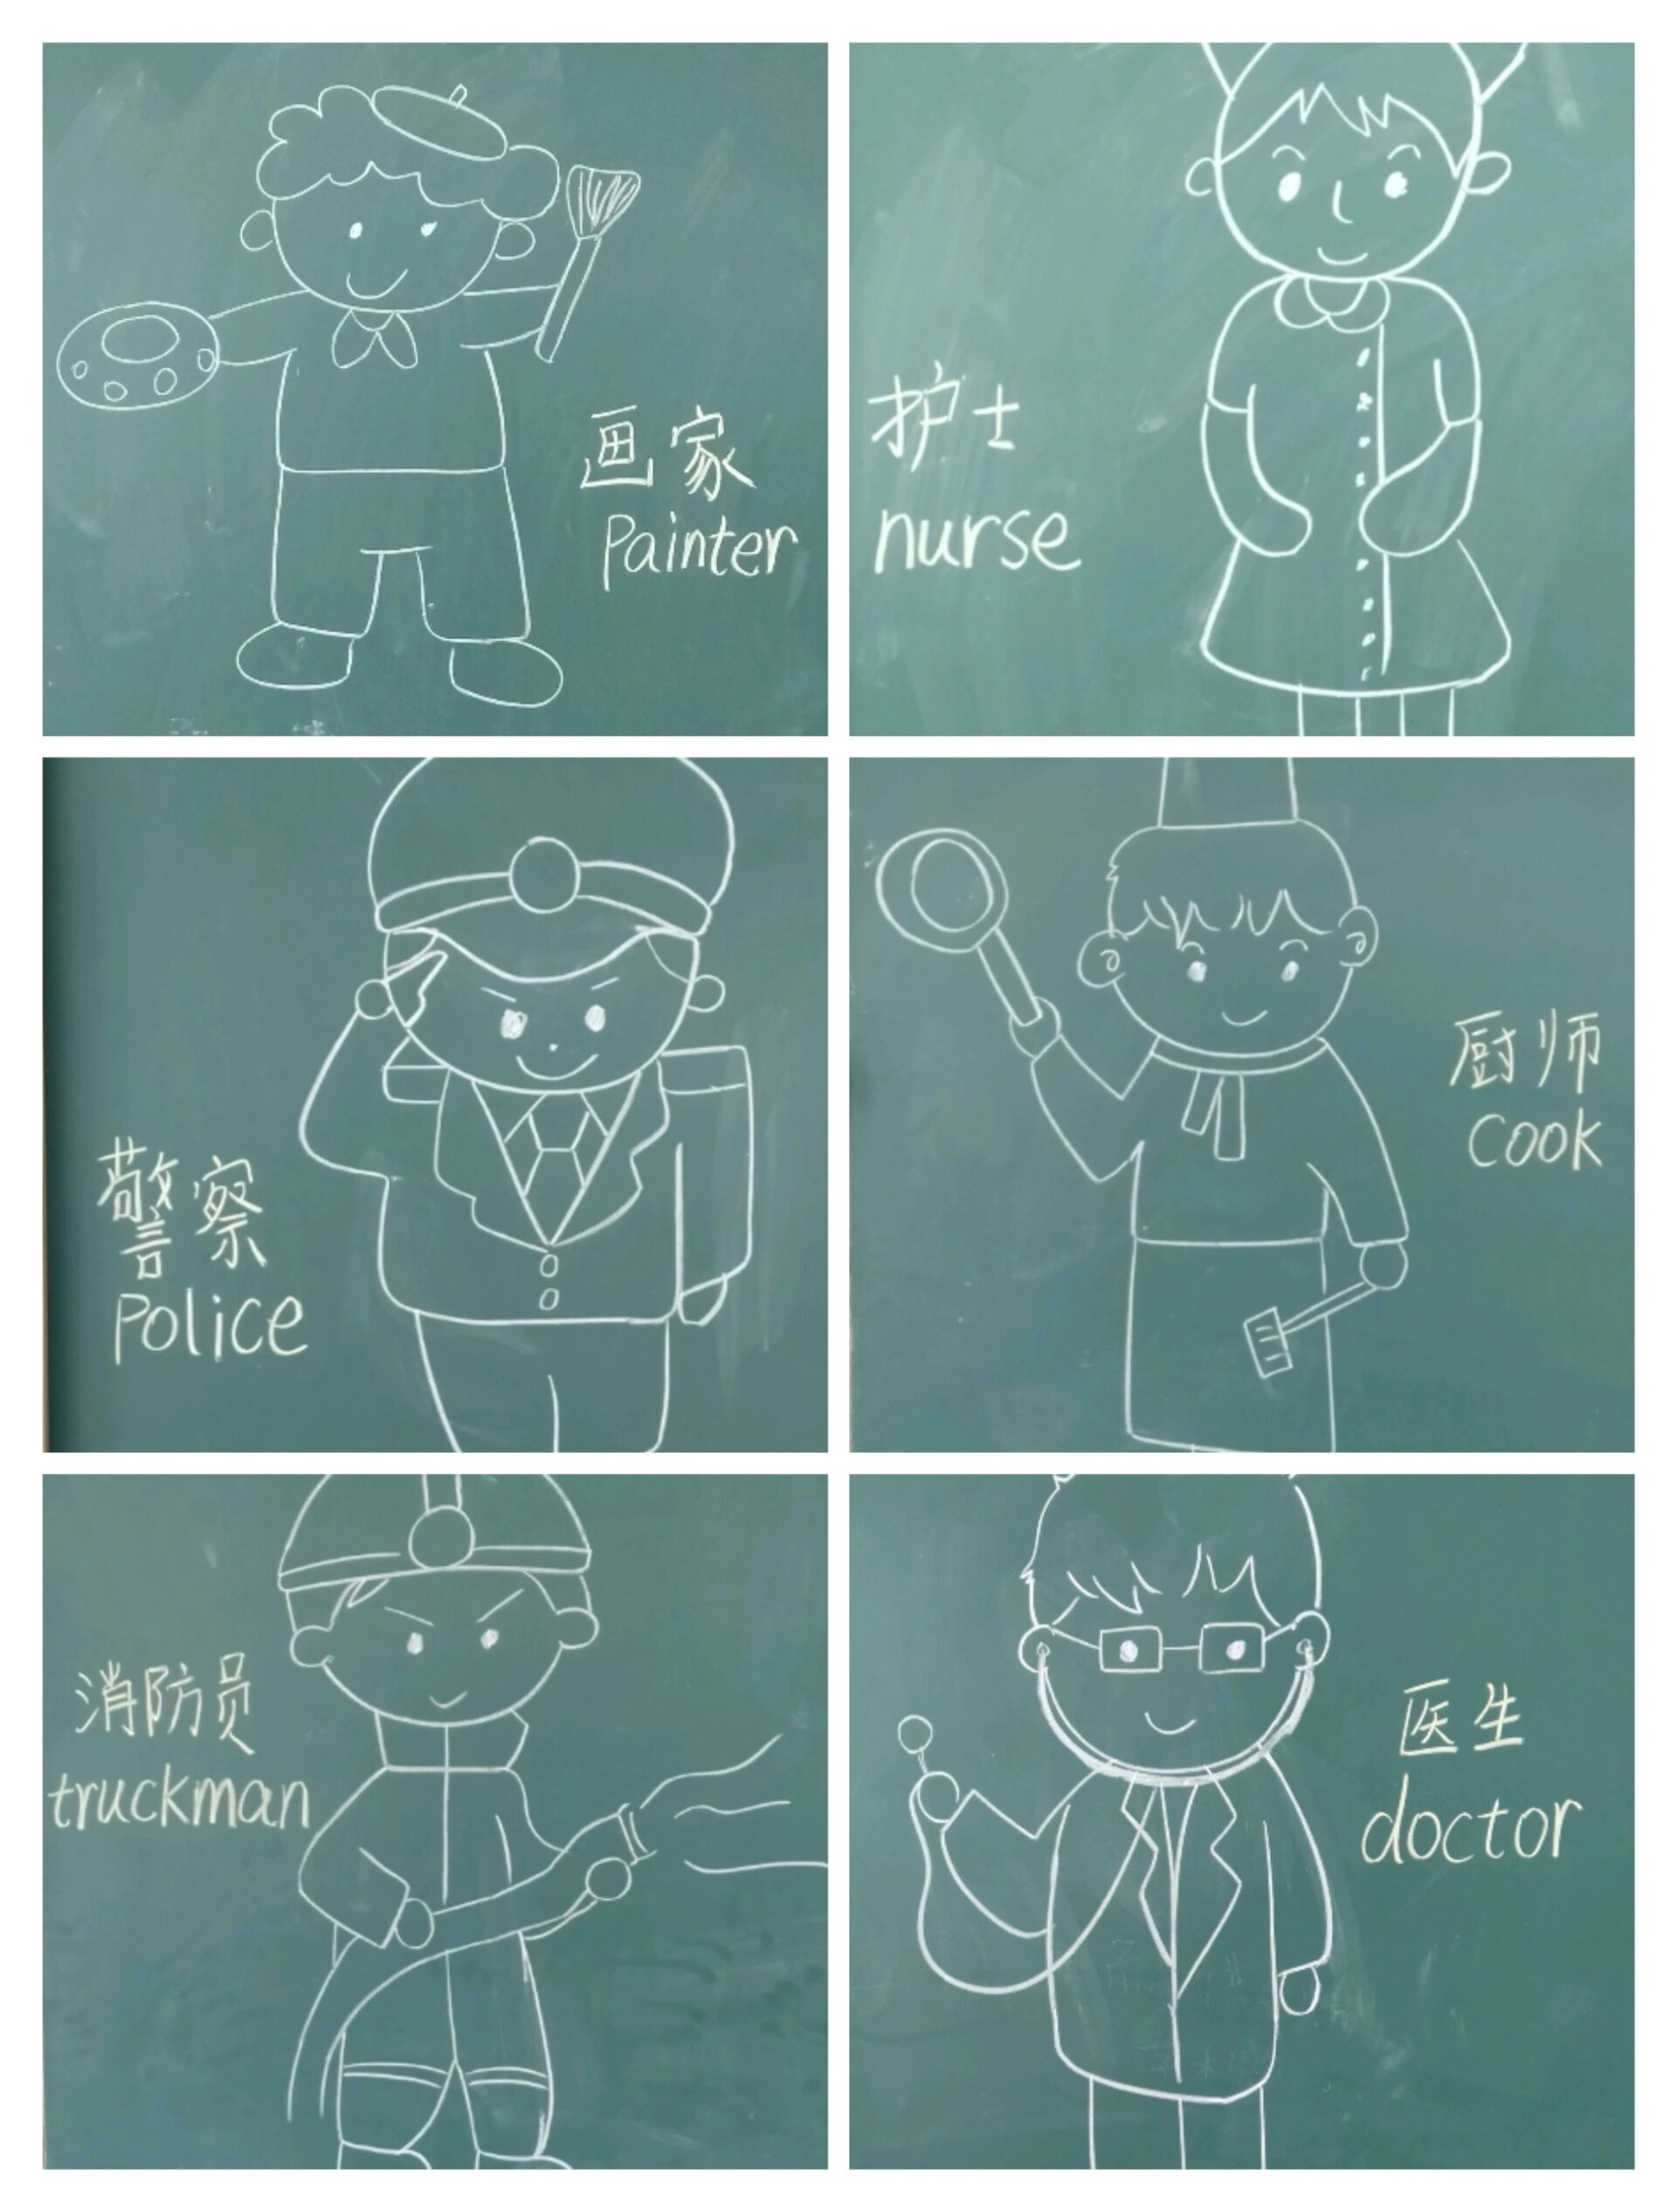 画家
Painter
护士
nurse
警察
Police
厨师
cook
消防员
truckman
医生
doctor